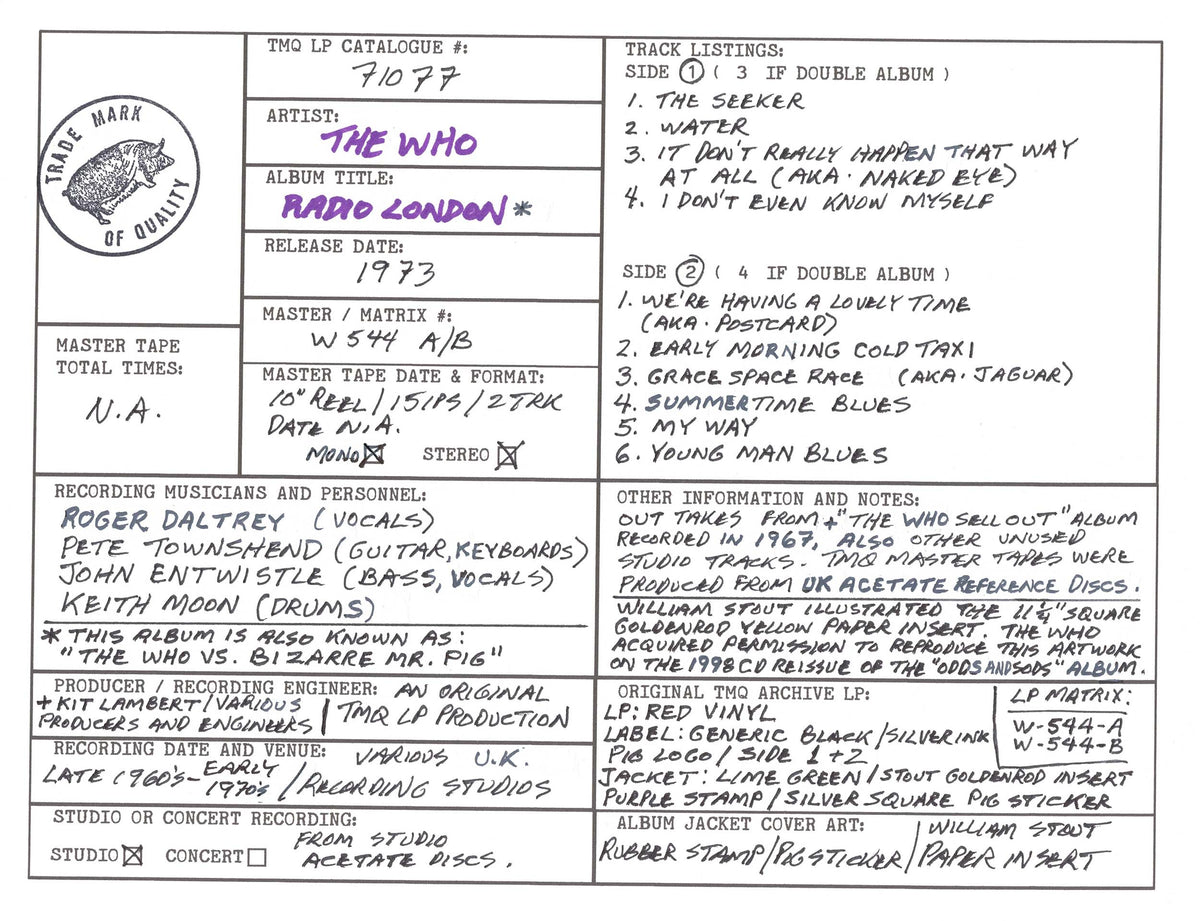 TRADE MARK
OF QUALITY
MASTER TAPE
TOTAL TIMES:
N.A.
TMQ LP CATALOGUE #:
71077
ARTIST:
THE WHO
ALBUM TITLE:
RADIO LONDON *
RELEASE DATE:
1973
MASTER / MATRIX #:
W 544 A/B
MASTER TAPE DATE & FORMAT:
10" REEL / 15 IPS / 2 TRK
DATE N.A.
MONO ☒ STEREO ☒
TRACK LISTINGS:
SIDE ① ( 3 IF DOUBLE ALBUM )
1. THE SEEKER
2. WATER
3. IT DON'T REALLY HAPPEN THAT WAY
AT ALL (AKA · NAKED EYE)
4. I DON'T EVEN KNOW MYSELF
SIDE ② ( 4 IF DOUBLE ALBUM )
1. WE'RE HAVING A LOVELY TIME
(AKA · POSTCARD)
2. EARLY MORNING COLD TAXI
3. GRACE SPACE RACE (AKA · JAGUAR)
4. SUMMERTIME BLUES
5. MY WAY
6. YOUNG MAN BLUES
RECORDING MUSICIANS AND PERSONNEL:
ROGER DALTREY (VOCALS)
PETE TOWNSHEND (GUITAR, KEYBOARDS)
JOHN ENTWISTLE (BASS, VOCALS)
KEITH MOON (DRUMS)
* THIS ALBUM IS ALSO KNOWN AS:
"THE WHO VS. BIZARRE MR. PIG"
OTHER INFORMATION AND NOTES:
OUT TAKES FROM + "THE WHO SELL OUT" ALBUM
RECORDED IN 1967, ALSO OTHER UNUSED
STUDIO TRACKS. TMQ MASTER TAPES WERE
PRODUCED FROM UK ACETATE REFERENCE DISCS.
WILLIAM STOUT ILLUSTRATED THE 11 1/4" SQUARE
GOLDENROD YELLOW PAPER INSERT. THE WHO
ACQUIRED PERMISSION TO REPRODUCE THIS ARTWORK
ON THE 1998 CD REISSUE OF THE "ODDS AND SODS" ALBUM.
PRODUCER / RECORDING ENGINEER: AN ORIGINAL
+ KIT LAMBERT / VARIOUS
PRODUCERS AND ENGINEERS | TMQ LP PRODUCTION
RECORDING DATE AND VENUE: VARIOUS U.K.
LATE 1960'S - EARLY
1970'S / RECORDING STUDIOS
STUDIO OR CONCERT RECORDING:
STUDIO ☒ CONCERT ☐ FROM STUDIO
ACETATE DISCS.
ORIGINAL TMQ ARCHIVE LP:
LP: RED VINYL
LABEL: GENERIC BLACK / SILVER INK
PIG LOGO / SIDE 1 + 2
LP MATRIX:
W-544-A
W-544-B
JACKET: LIME GREEN / STOUT GOLDENROD INSERT
PURPLE STAMP / SILVER SQUARE PIG STICKER
ALBUM JACKET COVER ART:
RUBBER STAMP / PIG STICKER / WILLIAM STOUT
PAPER INSERT